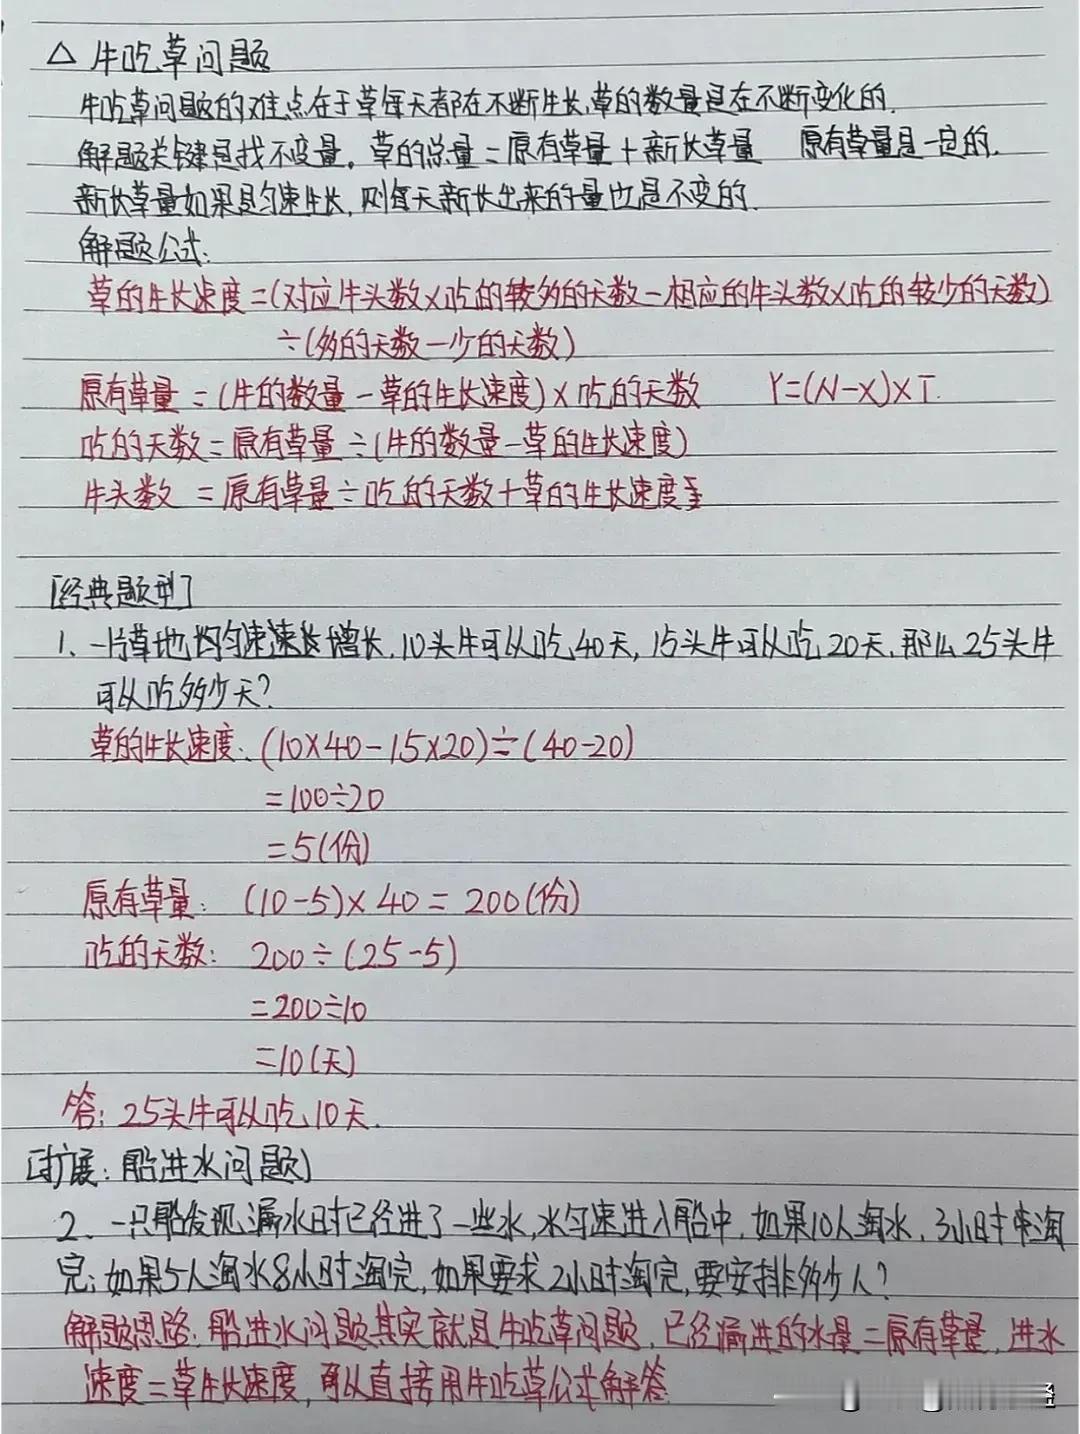 △ 牛吃草问题
牛吃草问题的难点在于草每天都在不断生长,草的数量是在不断变化的.
解题关键是找不变量。草的总量=原有草量+新长草量 原有草量是一定的.
新长草量如果是匀速生长,则每天新长出来的量也是不变的.
解题公式:
草的生长速度=(对应牛头数×吃的较多的天数-相应的牛头数×吃的较少的天数)
÷(多的天数-少的天数)
原有草量=(牛的数量-草的生长速度)×吃的天数 Y=(N-X)×T.
吃的天数=原有草量÷(牛的数量-草的生长速度)
牛头数=原有草量÷吃的天数+草的生长速度
[经典题型]
1、一片草地,均匀速速长增长,10头牛可以吃40天,15头牛可以吃20天,那么25头牛
可以吃多少天?
草的生长速度:(10×40-15×20)÷(40-20)
=100÷20
=5(份)
原有草量:(10-5)×40=200(份)
吃的天数:200÷(25-5)
=200÷10
=10(天)
答:25头牛可以吃10天.
[扩展:船进水问题]
2、一只船发现漏水时已经进了一些水,水匀速进入船中,如果10人淘水,3小时淘
完;如果5人淘水8小时淘完,如果要求2小时淘完,要安排多少人?
解题思路:船进水问题其实就是牛吃草问题,已经漏进的水量=原有草量,进水
速度=草生长速度,可以直接用牛吃草公式解答